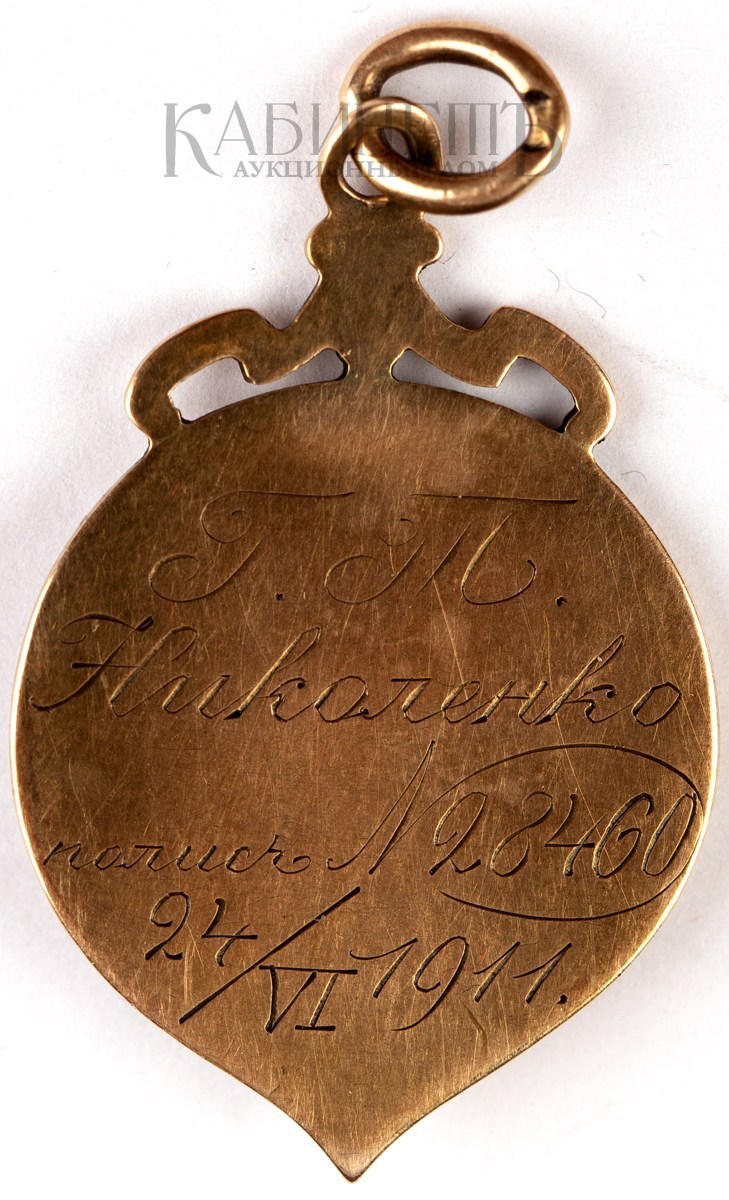 КАБИНЕТЪ
АУКЦИОННЫЙ ДОМ
Г. Т.
Николенко
полисъ № 28460
24/VI 1911.